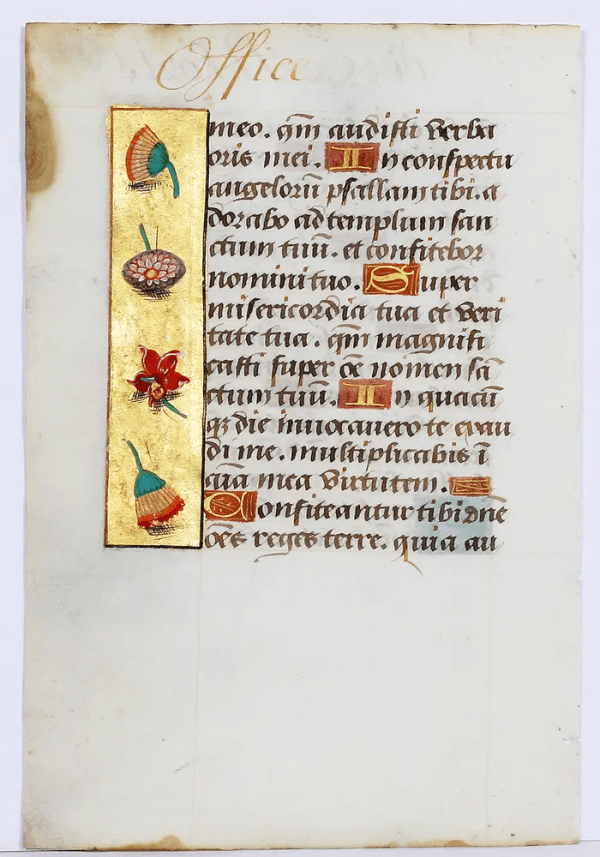 Office
meo. qm̄ audisti verba
oris mei. In conspectu
angelorū psallam tibi. a
dorabo ad templum san
ctum tuū. et confitebor
nomini tuo. Super
misericordia tua et veri
tate tua. qm̄ magnifi
casti super oē nomen sā
ctum tuū. In quacū
qȝ die inuocauero te exau
di me. multiplicabis ī
aīa mea virtutem.
Confiteantur tibi dn̄e
oēs reges terre. quia au